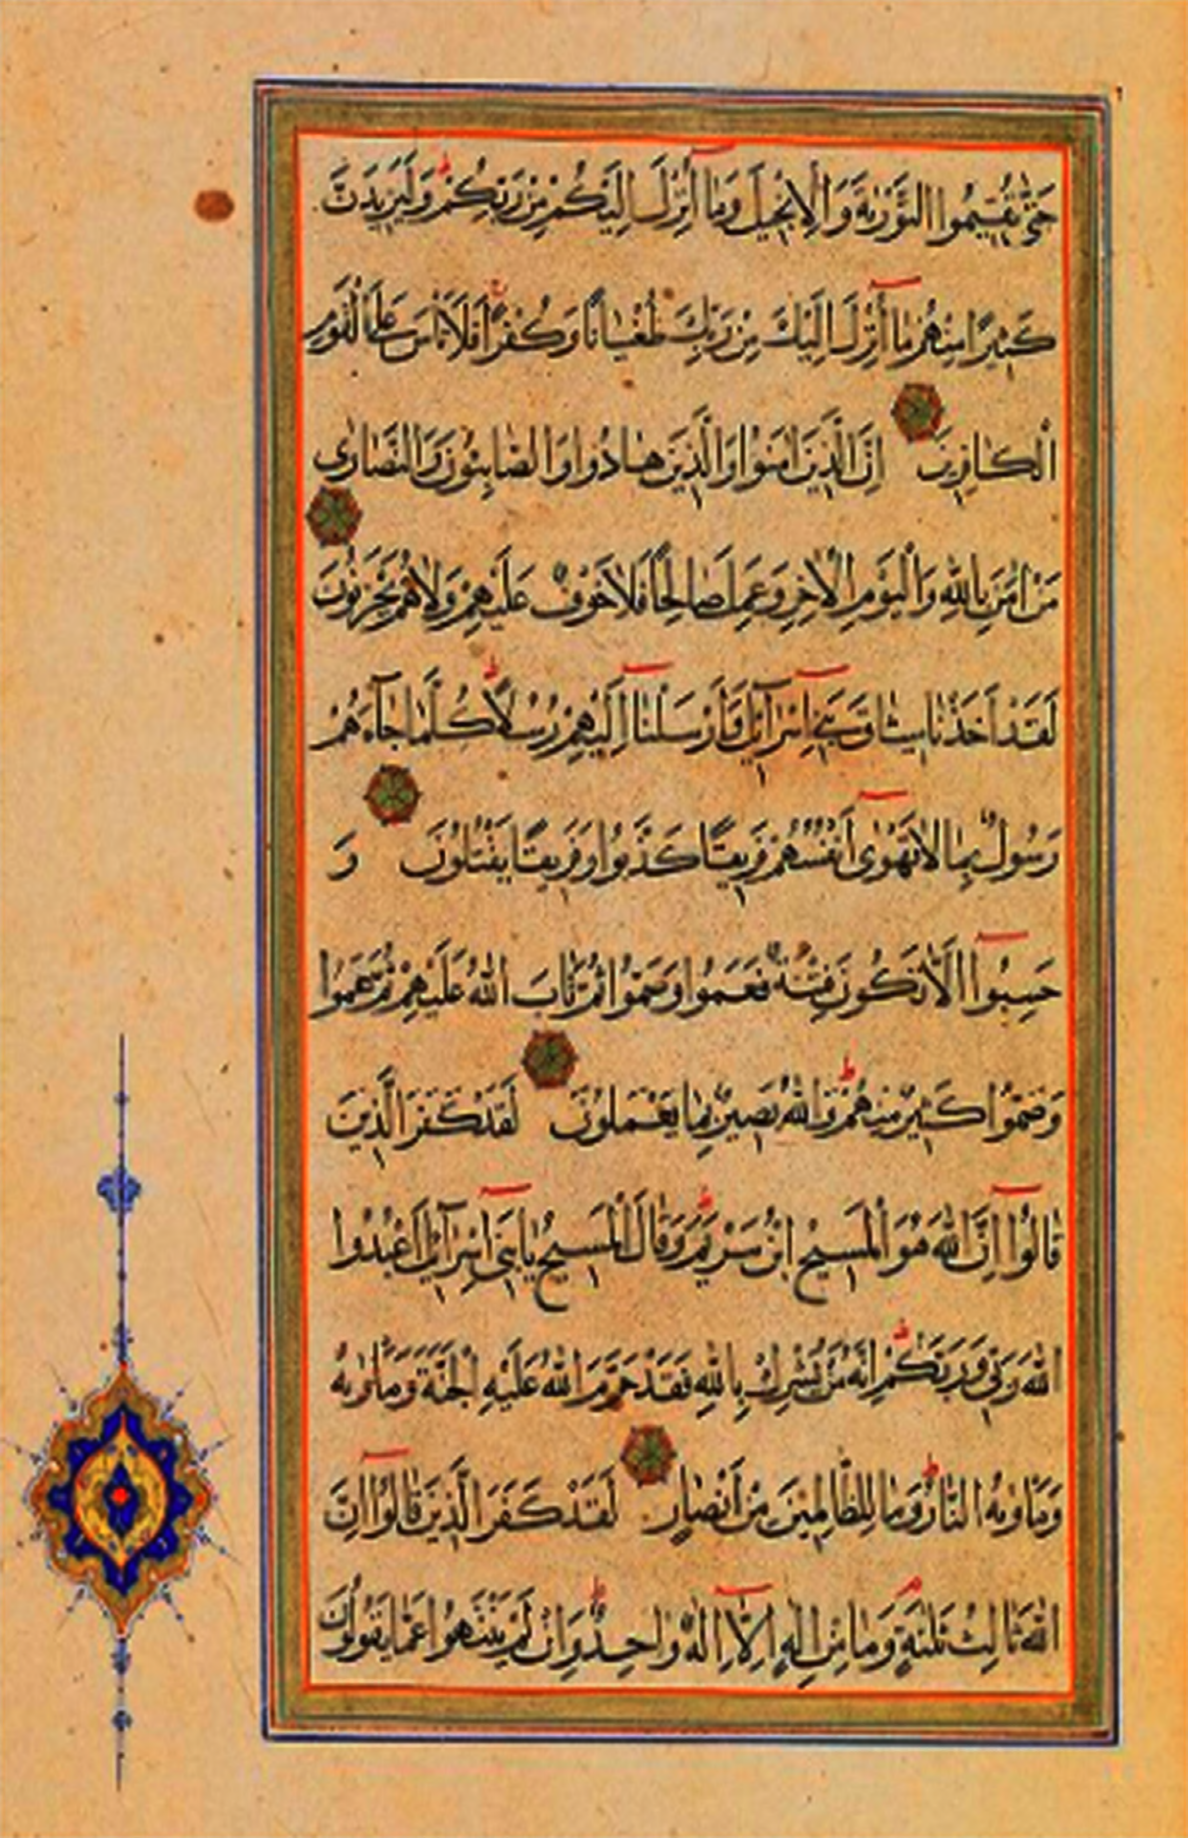 حَتّٰى تُقٖيمُوا التَّوْرٰيةَ وَالْاِنْجٖيلَ وَمَٓا اُنْزِلَ اِلَيْكُمْ مِنْ رَبِّكُمْ وَلَيَزٖيدَنَّ
كَثٖيرًا مِنْهُمْ مَٓا اُنْزِلَ اِلَيْكَ مِنْ رَبِّكَ طُغْيَانًا وَكُفْرًا فَلَا تَأْسَ عَلَى الْقَوْمِ
الْكَافِرٖينَ اِنَّ الَّذٖينَ اٰمَنُوا وَالَّذٖينَ هَادُوا وَالصَّابِئُونَ وَالنَّصَارٰى
مَنْ اٰمَنَ بِاللّٰهِ وَالْيَوْمِ الْاٰخِرِ وَعَمِلَ صَالِحًا فَلَا خَوْفٌ عَلَيْهِمْ وَلَا هُمْ يَحْزَنُونَ
لَقَدْ اَخَذْنَا مٖيثَاقَ بَنٖٓي اِسْرَٓائٖيلَ وَاَرْسَلْنَٓا اِلَيْهِمْ رُسُلًا كُلَّمَا جَٓاءَهُمْ
رَسُولٌ بِمَا لَا تَهْوٰٓى اَنْفُسُهُمْ فَرٖيقًا كَذَّبُوا وَفَرٖيقًا يَقْتُلُونَ وَ
حَسِبُٓوا اَلَّا تَكُونَ فِتْنَةٌ فَعَمُوا وَصَمُّوا ثُمَّ تَابَ اللّٰهُ عَلَيْهِمْ ثُمَّ عَمُوا
وَصَمُّوا كَثٖيرٌ مِنْهُمْ وَاللّٰهُ بَصٖيرٌ بِمَا يَعْمَلُونَ لَقَدْ كَفَرَ الَّذٖينَ
قَالُٓوا اِنَّ اللّٰهَ هُوَ الْمَسٖيحُ ابْنُ مَرْيَمَ وَقَالَ الْمَسٖيحُ يَا بَنٖٓي اِسْرَٓائٖيلَ اعْبُدُوا
اللّٰهَ رَبّٖي وَرَبَّكُمْ اِنَّهُ مَنْ يُشْرِكْ بِاللّٰهِ فَقَدْ حَرَّمَ اللّٰهُ عَلَيْهِ الْجَنَّةَ وَمَأْوٰيهُ
وَمَأْوٰيهُ النَّارُ وَمَا لِلظَّالِمٖينَ مِنْ اَنْصَارٍ لَقَدْ كَفَرَ الَّذٖينَ قَالُٓوا اِنَّ
اللّٰهَ ثَالِثُ ثَلٰثَةٍ وَمَا مِنْ اِلٰهٍ اِلَّٓا اِلٰهٌ وَاحِدٌ وَاِنْ لَمْ يَنْتَهُوا عَمَّا يَقُولُونَ